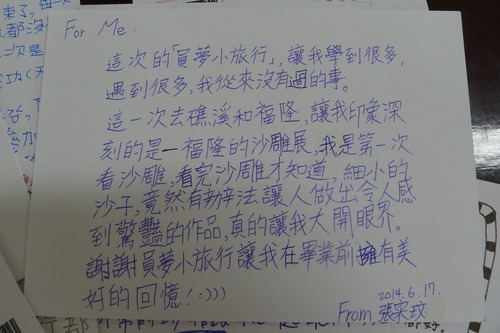 For Me:
這次的「員夢小旅行」,讓我學到很多,
遇到很多,我從來沒有過的事。
這一次去礁溪和福隆,讓我印象深
刻的是一福隆的沙雕展,我是第一次
看沙雕,看完沙雕才知道,細小的
沙子,竟然有辦法讓人做出令人感
到驚豔的作品,真的讓我大開眼界。
謝謝員夢小旅行讓我在畢業前擁有美
好的回憶!:)))
2014.6.17.
From 張
東了,每一
都沒
次是